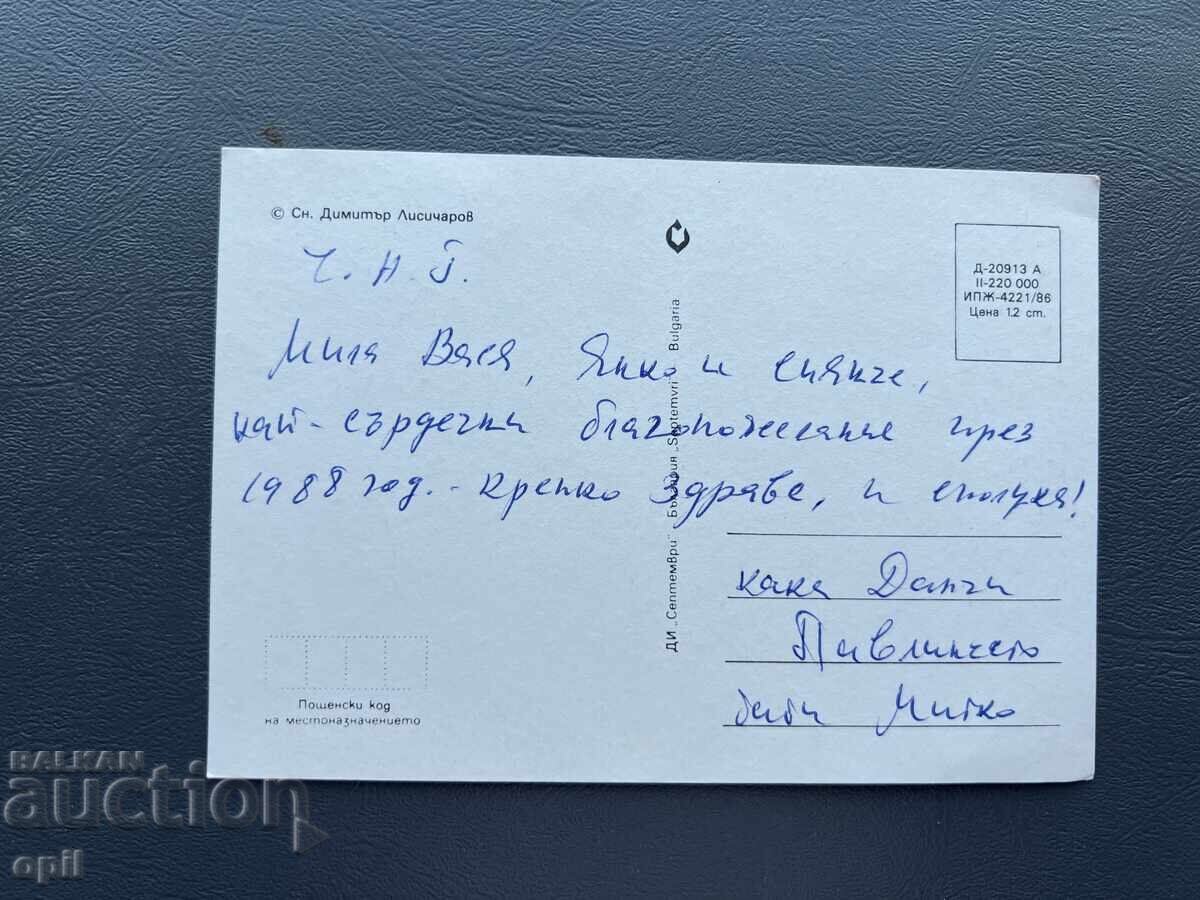 © Сн. Димитър Лисичаров
Ч. Н. Г.
Мила Вася, Янко и Сиянче,
най-сърдечни благопожелания през
1988 год. - крепко здраве, и сполука!
кака Данчи
Павлинчето
бати Митко
Д-20913 А
II-220 000
ИПЖ-4221/86
Цена 12 ст.
ДИ „Септември" България „Septemvri" Bulgaria
Пощенски код
на местоназначението
BALKAN
auction
opil